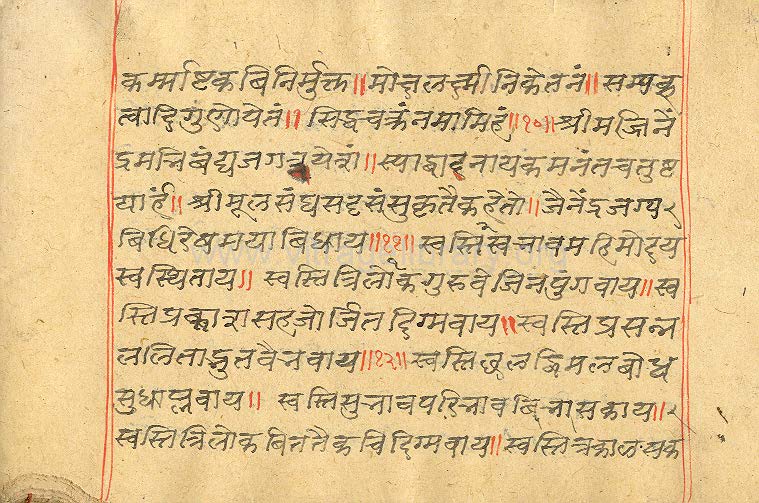 कर्म्माष्टकबिनिर्मुक्त॥मोक्षलक्ष्मीनिकेतनं॥सम्यक्
त्वादिगुणोपेतं॥सिद्धचक्रंनमामिहं॥१०॥श्रीमज्जिनें
द्रमनिबंद्यजगत्रयेशं॥स्याद्वादनायकमनंतचतुष्ट
यार्हं॥श्रीमूलसंघसदृसंसुकृतैकहेतो॥जैनेंद्रजग्प२
बिधिरेषमयाबिधाय॥११॥स्वस्तिस्वभावमहिमोदय
स्वस्थिताय॥स्वस्तित्रिलोकगुरुवेजिनपुंगवाय॥स्व
स्तिप्रकाशसहजोर्जितदृिग्मवाय॥स्वस्तिप्रसन्न
ललिताद्भुतवैभवाय॥१२॥स्वस्तिछलद्विमलबोध
सुधाप्लवाय॥स्वस्तिसुभावपरिभावबिभासकाय॥२
स्वस्तित्रिलोकबिततैकचिदिग्मवाय॥स्वस्ति